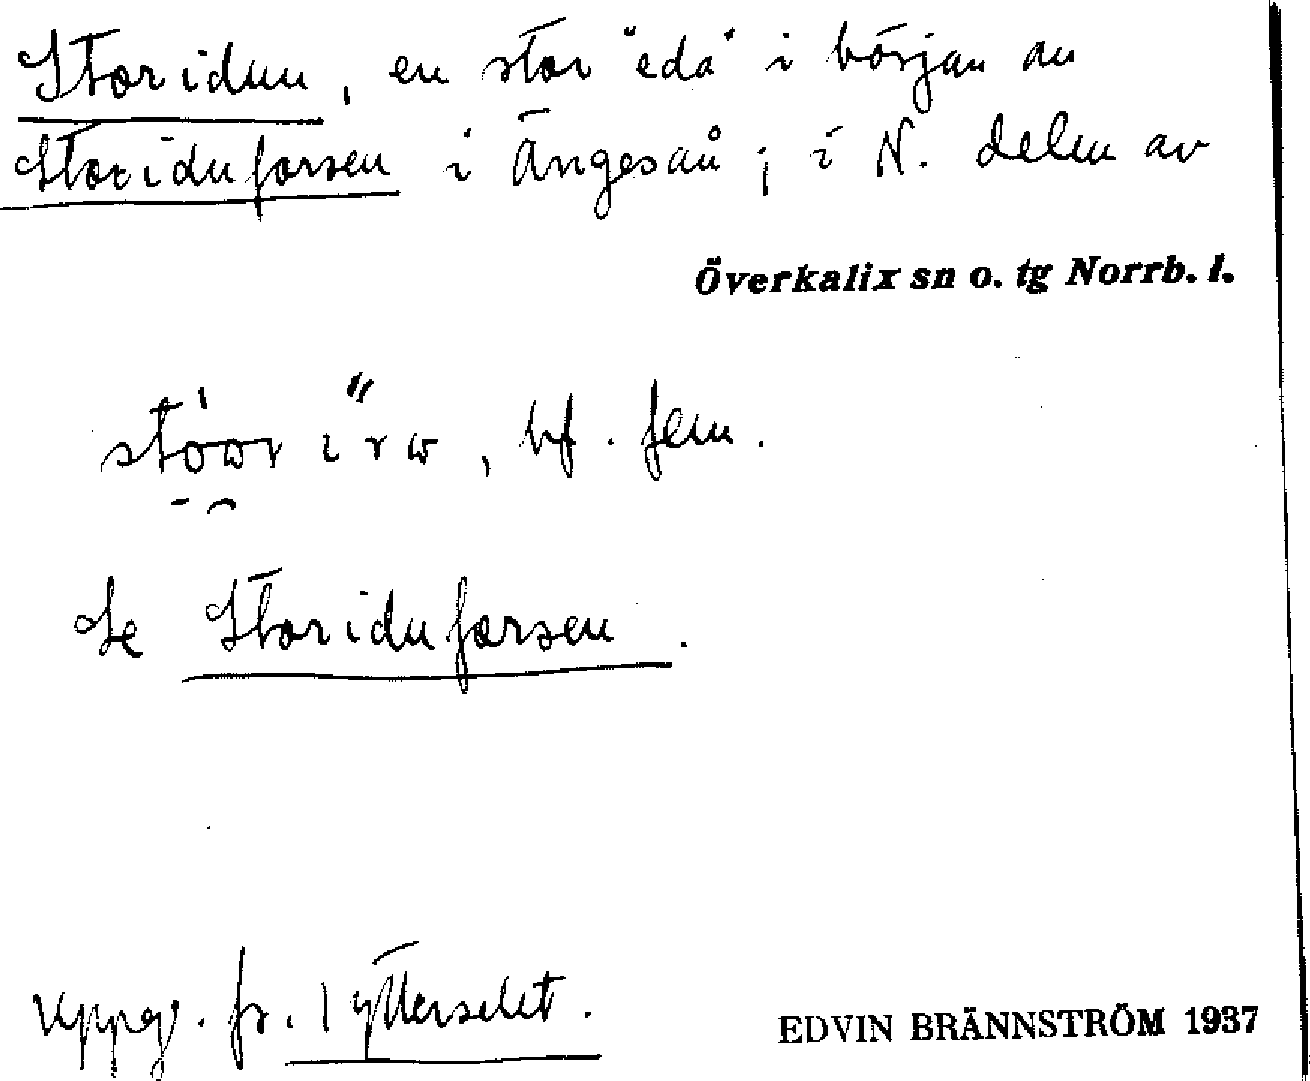 Storidun, en stor "eda" i början av
Storiduforsen i Ängesån; i N. delen av
Överkalix sn o. tg Norrb. l.
bf. fem.
Se Storiduforsen.
Uppg. fr. Ytterselet.
EDVIN BRÄNNSTRÖM 1937